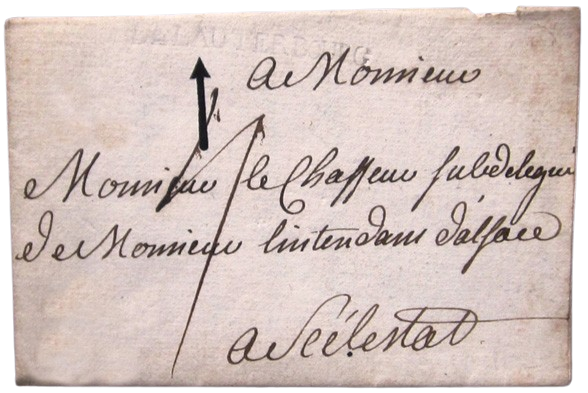 a Monsieur
Monsieur le Chasseur subdelegué
de Monsieur lintendans d'alsace
a Scélestat